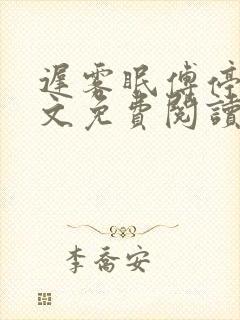 遲雾眠傅停
文免費閱讀
李喬安